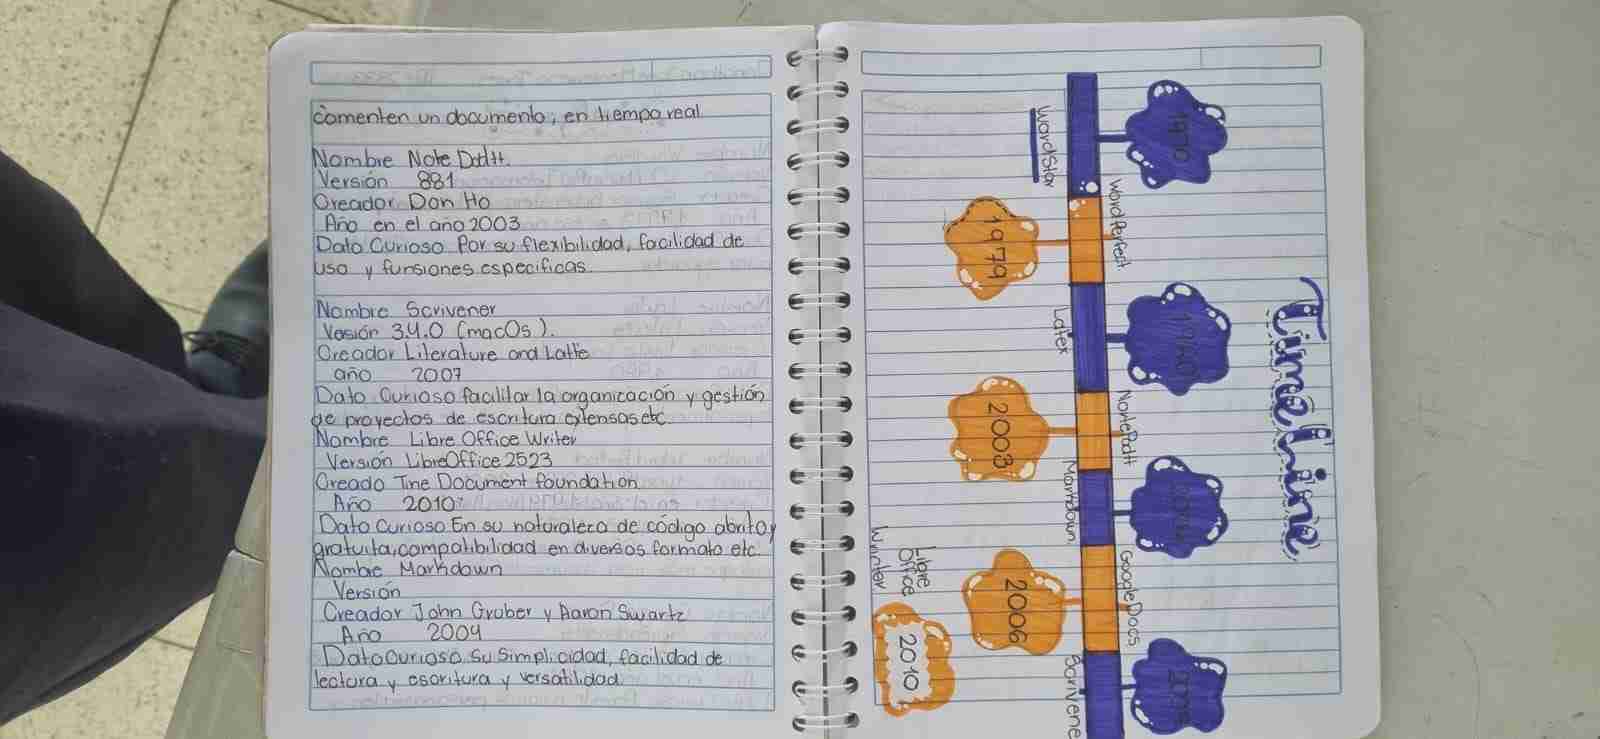 comenten un documento, en tiempo real
Nombre Note Padtt.
Versión 881
Creador Don Ho
Año en el año 2003
Dato Curioso Por su flexibilidad, facilidad de
uso y funsiones especificas.
Nombre Scrivener
Vesión 3.4.0 (macOs).
Creador Literature and Latte
año 2007
Dato Curioso facilitar la organización y gestión
de proyectos de escritura extensas etc.
Nombre Libre Office Writer
Versión LibreOffice 2523
Creado Tine Document foundation
Año 2010
Dato Curioso En su naturaleza de código abrito y
gratuita, compatibilidad en diversos formato etc.
Nombre Markdown
Versión
Creador John Gruber y Aaron Swartz
Año 2004
Dato Curioso Su Simplicidad, facilidad de
lectura y escritura y versatilidad.
Time Line
1970
WordStar
WordPerfect
1979
Latex
NortePadtt
2003
Markdown
GoogleDocs
2006
Scrivene
Libre
Office
Wrinter
2010